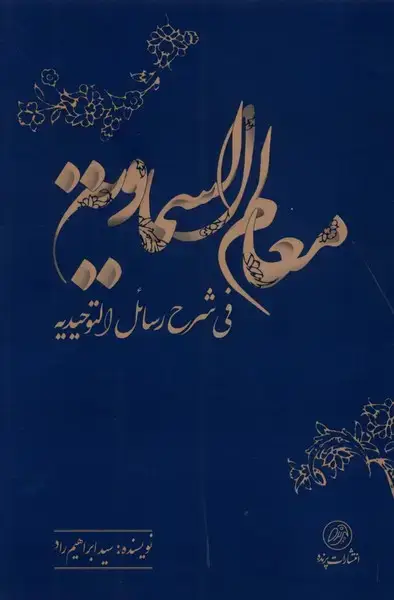 معالم السماویة
فی شرح رسائل التوحیدیه
نویسنده: سید ابراهیم راد
انتشارات پرنده